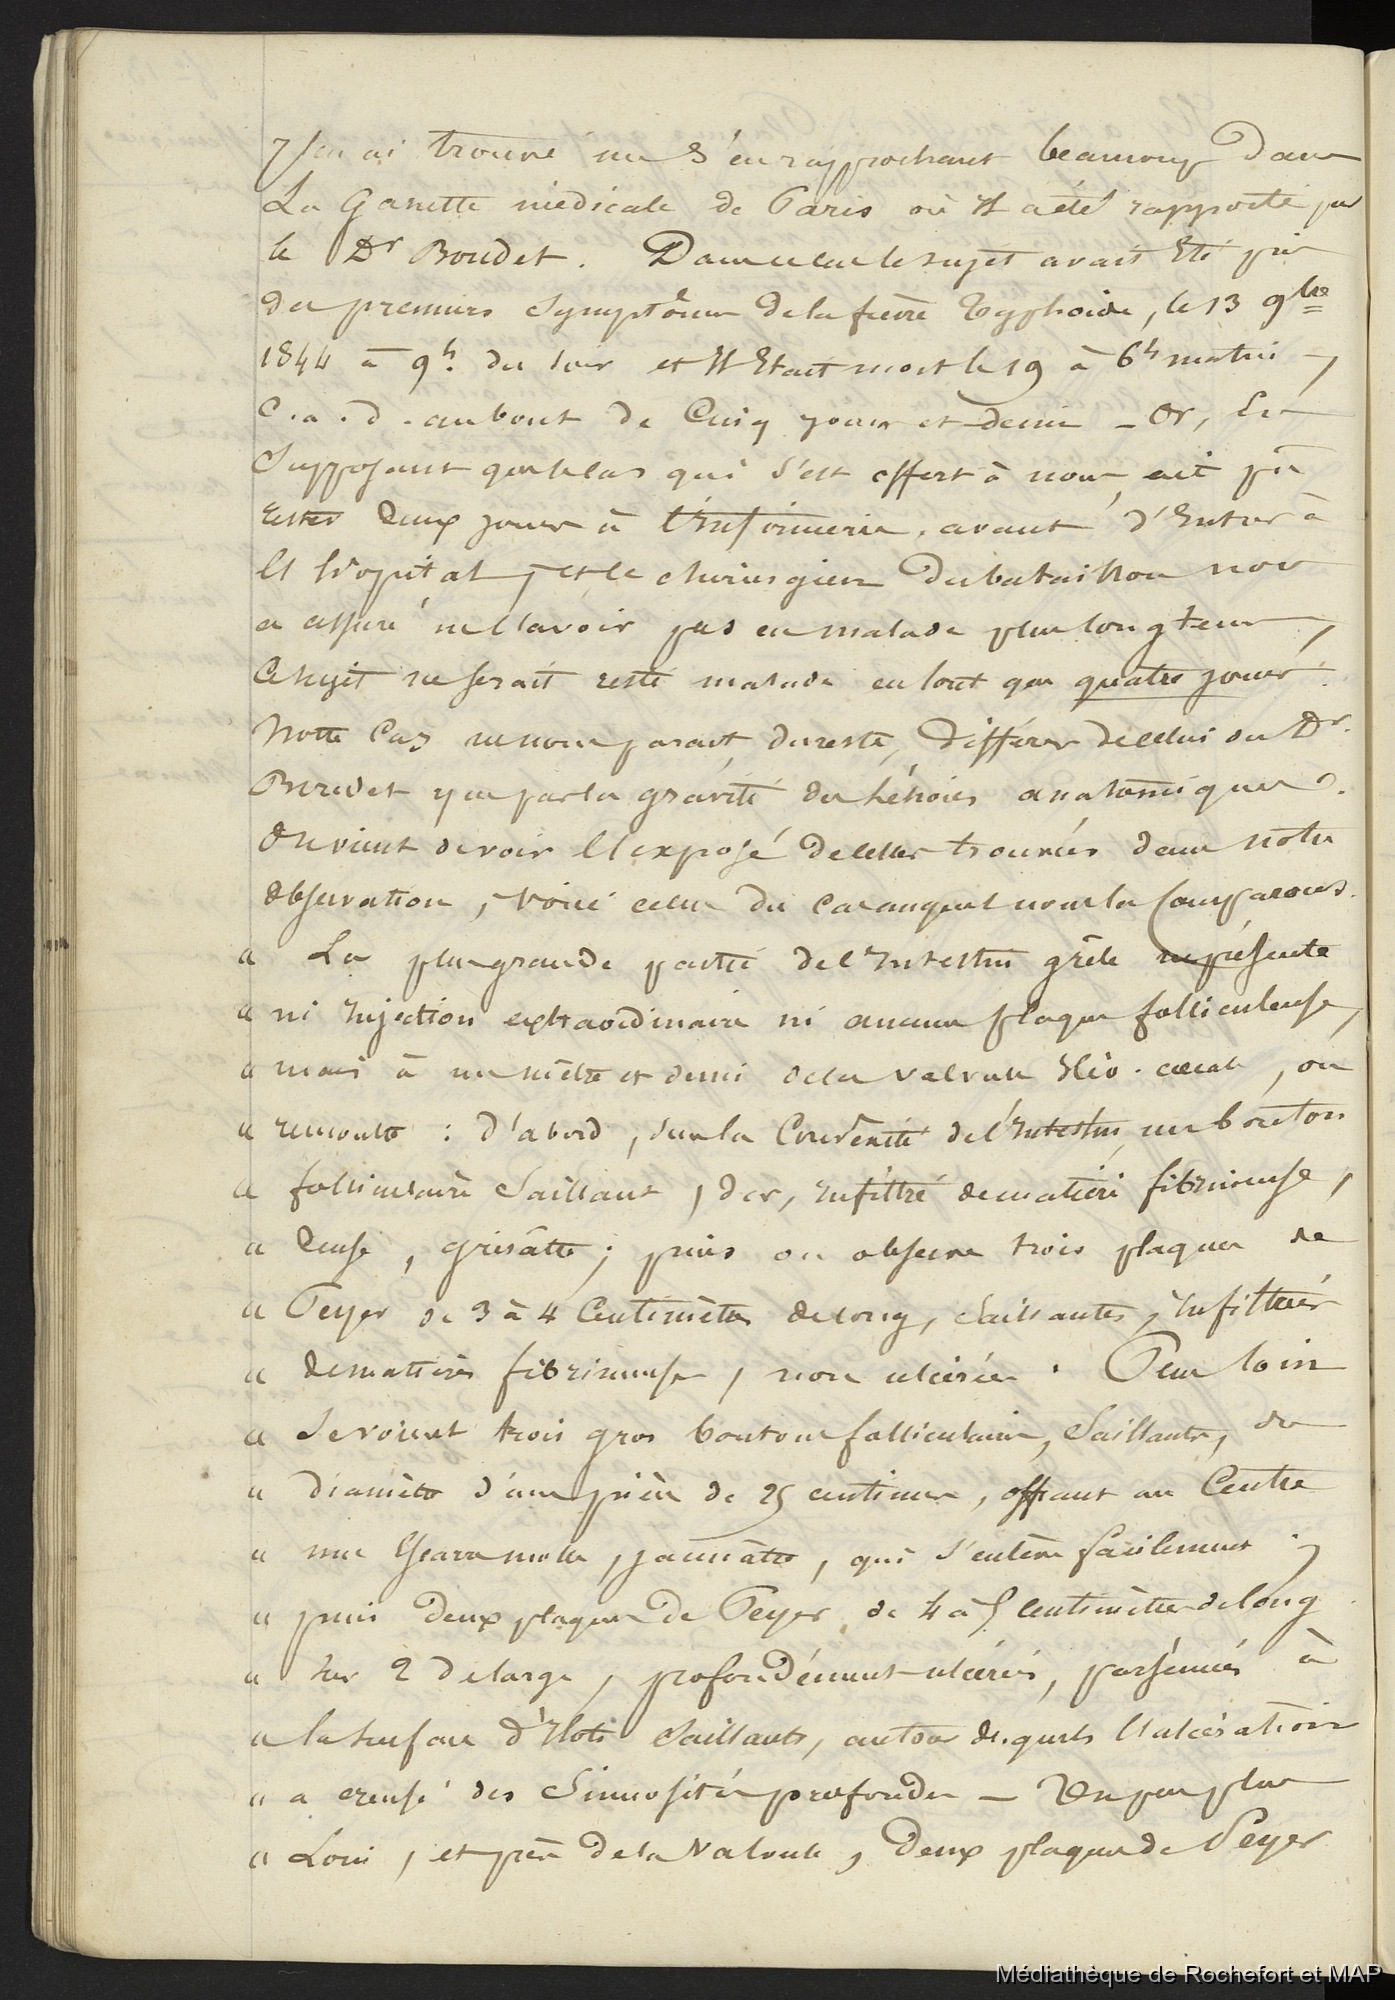 J'en ai trouvé un s'en rapprochant beaucoup dans
La Gazette médicale de Paris où Il a été rapporté par
le Dr Boudet. Dans ce cas le sujet avait Eté pris
des premiers Symptômes de la fièvre Typhoïde, le 13 9bre
1844 à 9h. du soir et Il Etait mort le 19 à 6h matin,
C.a.d. au bout de Cinq jours et demi - Or, En
Supposant que le cas qui s'est offert à nous, ait pû
rester deux jours à l'Infirmerie, avant d'Entrer à
l'hôpital, et le chirurgien du bataillon nous
a assuré ne l'avoir pas eu malade plus longtems,
Ce sujet ne serait resté malade en tout que quatre jours.
Notre Cas ne nous parait, du reste, différer de celui du Dr.
Boudet que par la gravité des Lésions anatomiques.
On vient de voir l'exposé de celles trouvées dans notre
Observation, Voici celles du cas auquel nous la Comparons.
« La plus grande partie de l'Intestin grêle ne présente
« ni Injection extraordinaire ni aucune plaque folliculeuse,
« mais à un mètre et demi de la Valvule Iléo-cœcale, on
« rencontre : d'abord, sur la Convexité de l'Intestin, un bouton
« folliculaire Saillant, dur, Infiltré de matière fibrineuse,
« dense, grisâtre ; puis on observe trois plaques de
« Peyer de 3 à 4 Centimètres de long, Saillantes, Infiltrées
« de matière fibrineuse, non ulcérées. Plus loin
« Se voient trois gros boutons folliculaires, Saillants, du
« diamètre d'une pièce de 25 centimes, offrant au Centre
« une Escarre molle, jaunâtre, qui s'enlève facilement ;
« puis deux plaques de Peyer, de 4 à 5 Centimètres de long
« sur 2 de large, profondément ulcérées, parsemées à
« la surface d'Ilots Saillants, autour desquels l'ulcération
« a creusé des Sinuosités profondes - Un peu plus
« Loin, et près de la Valvule, deux plaques de Peyer
Médiathèque de Rochefort et MAP